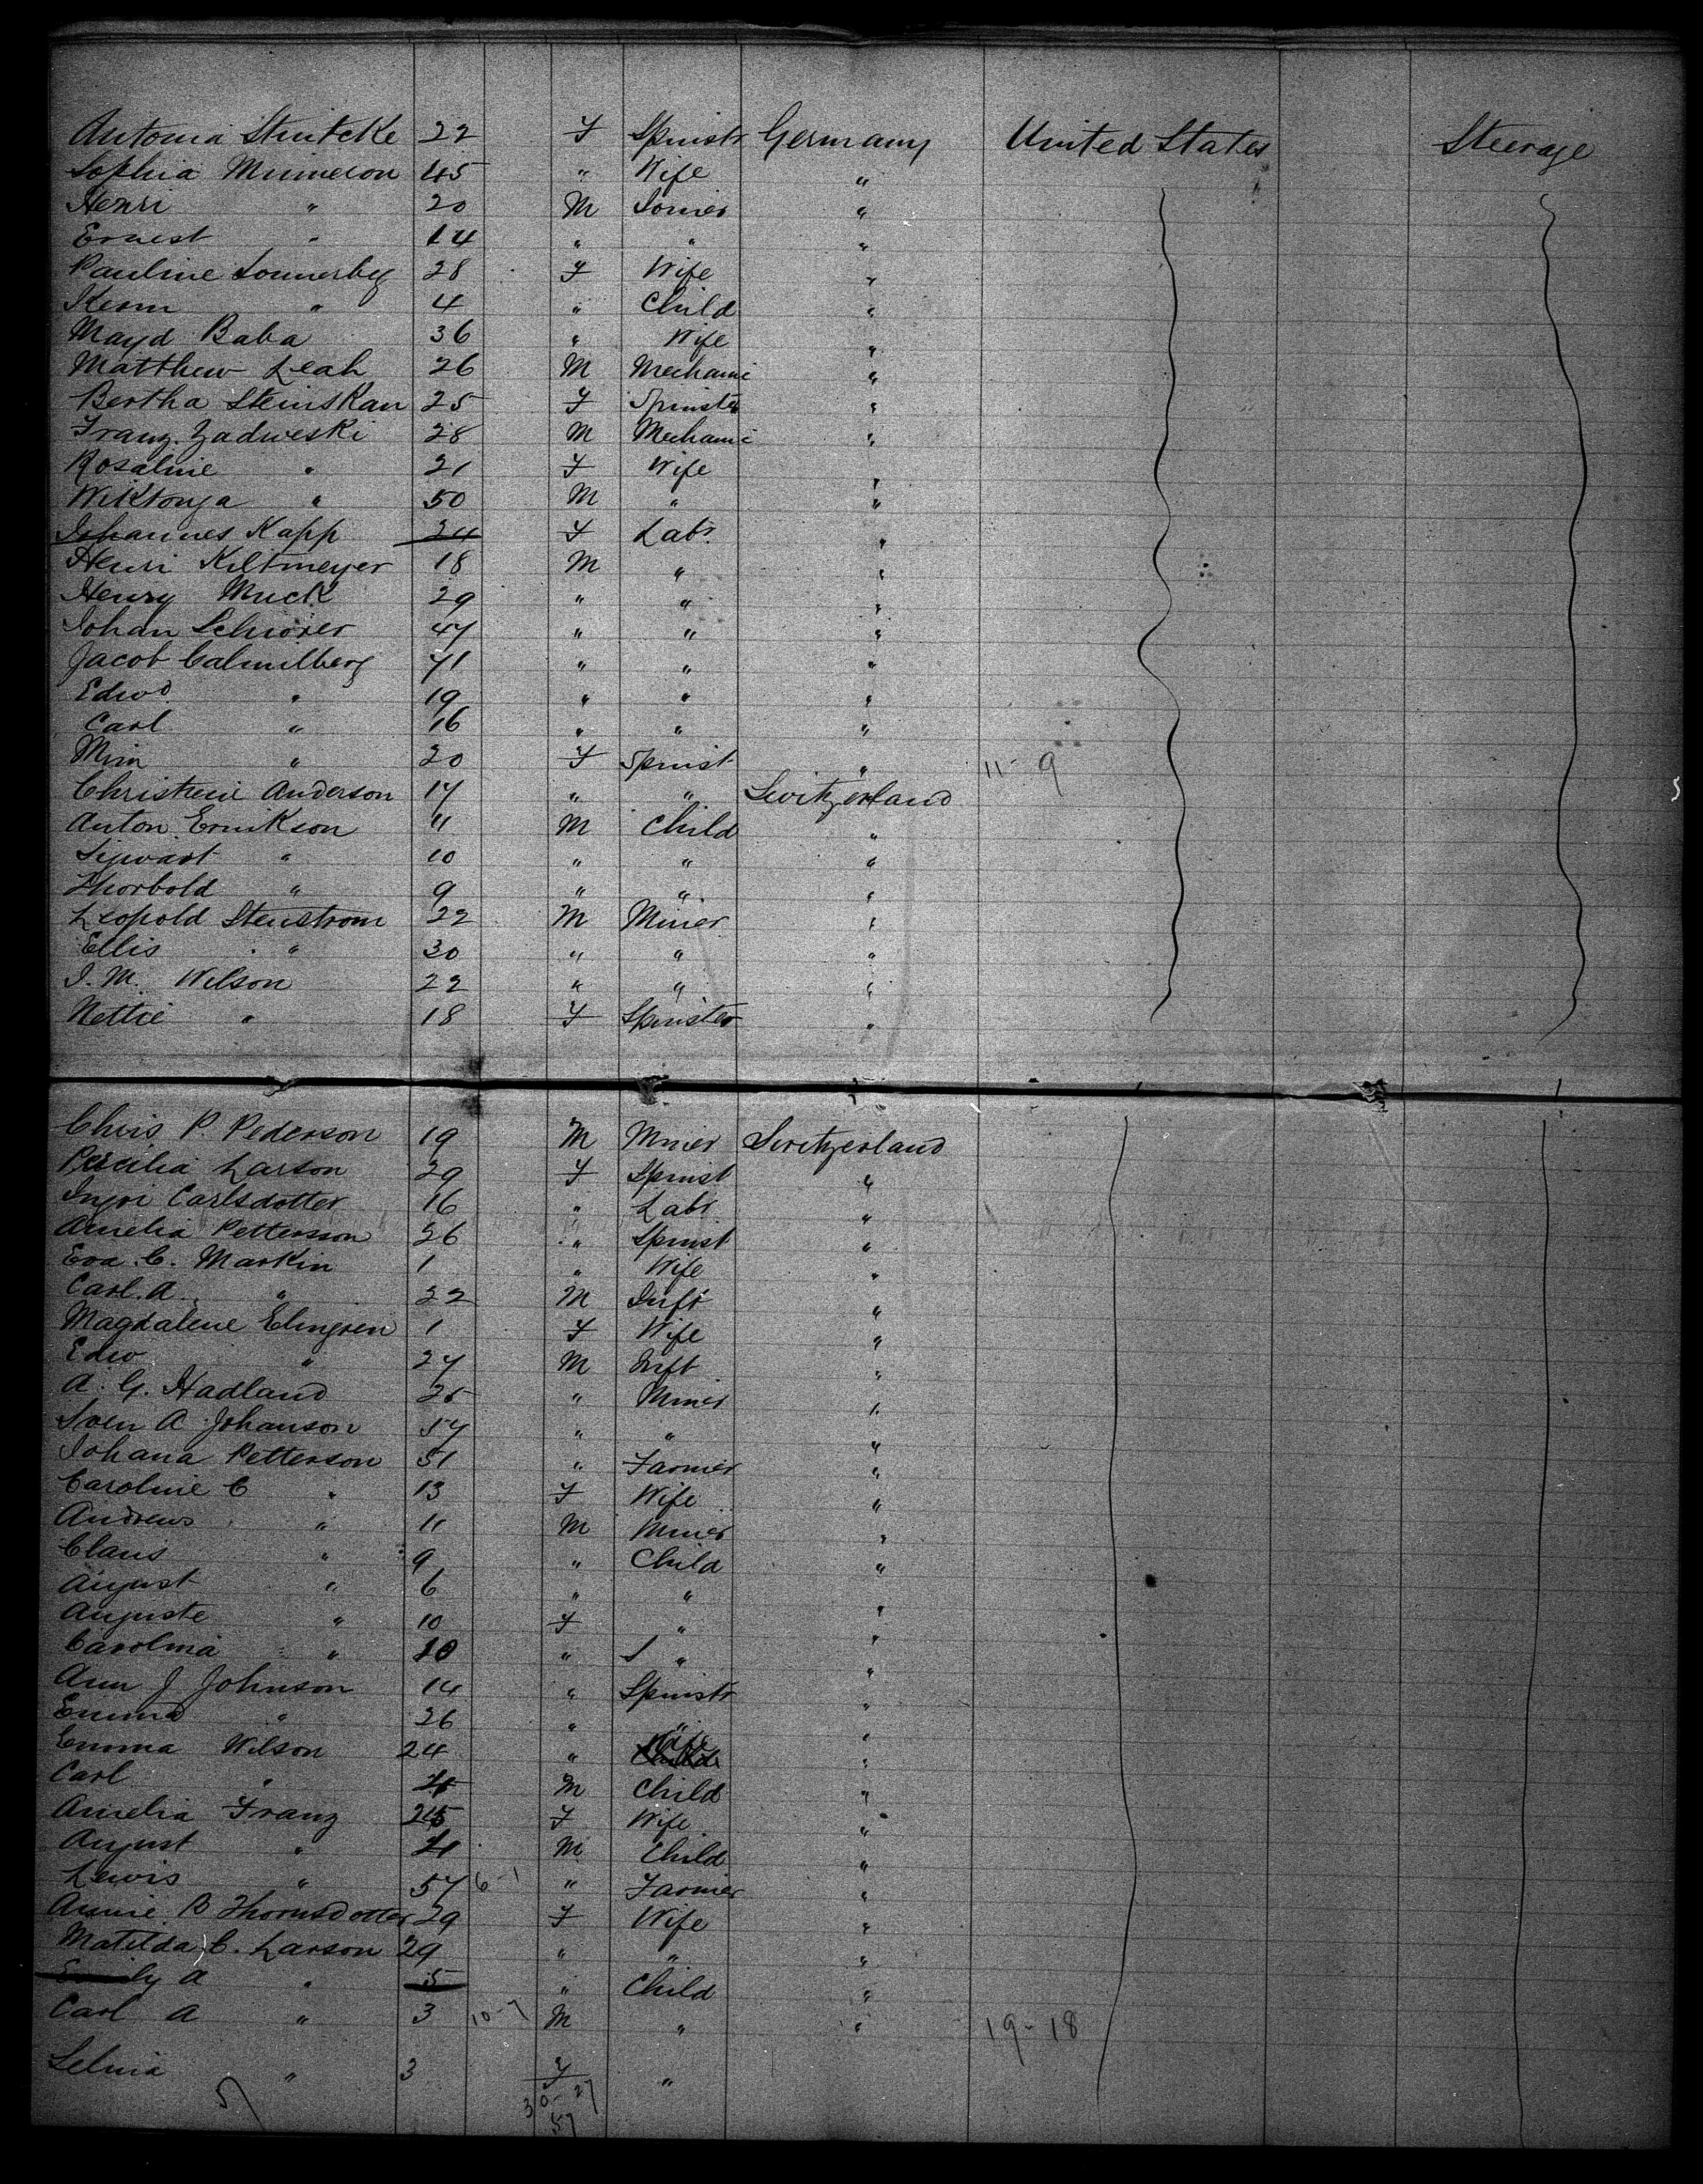 Antonia Steitcke 22 F Spinstr Germany United States Steerage
Sophia Munneson 45 " Wife "
Henri " 20 M Joiner "
Ernest " 14 " " "
Pauline Sonnerby 28 F Wife "
" 4 " Child "
Mayd Baba 36 " Wife "
Matthew Leah 26 M Mechanic "
Bertha Steinskan 25 F Spinster "
Franz Zadweski 28 M Mechanic "
Rosaline " 21 F Wife "
Wiktonga " 50 M " "
Johannes Kapp 24 F Labr "
Henri Kiltmeyer 18 M " "
Henry Muck 29 " " "
Johan Schroxer 47 " " "
Jacob Calmilberg 41 " " "
Edwd " 19 " " "
Carl " 16 " " "
Min " 20 F Spinst " 11-9
Christene Anderson 17 " " Switzerland
Anton Ernikson 11 M Child "
Sigwart " 10 " " "
Thorbold " 9 " " "
Leopold Stenstrom 22 M Miner "
Ellis " 30 " " "
J. M. Wilson 22 " " "
Nettie " 18 F Spinster "
Chris P. Pederson 19 M Miner Switzerland
Larson 29 F Spinst "
Ingri Carlsdotter 16 " Labr "
Amelia Petterson 26 " Spinst "
Eva C. Markin 1 " Wife "
Carl. A. " 22 M Inft "
Magdalene Elingren 1 F Wife "
Edw " 27 M Inft "
A. G. Hadland 25 " Miner "
Sven A Johanson 17 " " "
Johana Petterson 51 " Farmer "
Caroline C " 13 F Wife "
Andrews " 11 M Miner "
Claus " 9 " Child "
August " 6 " " "
Auguste " 10 F " "
Carolina " 10 " " "
Ann J Johnson 14 " Spinstr "
Emma " 26 " " "
Emma Wilson 24 " Wife "
Carl " 4 M Child "
Amelia Franz 25 F Wife "
August " 4 M Child "
Lewis " 57 6-1 " Farmer "
Annie B Thornsdotter 29 F Wife "
Matilda C. Larson 29 " " "
Emily A " 5 " Child "
Carl A " 3 10-7 M " " 19-18
Selma " 3 F "
57 30-27
57